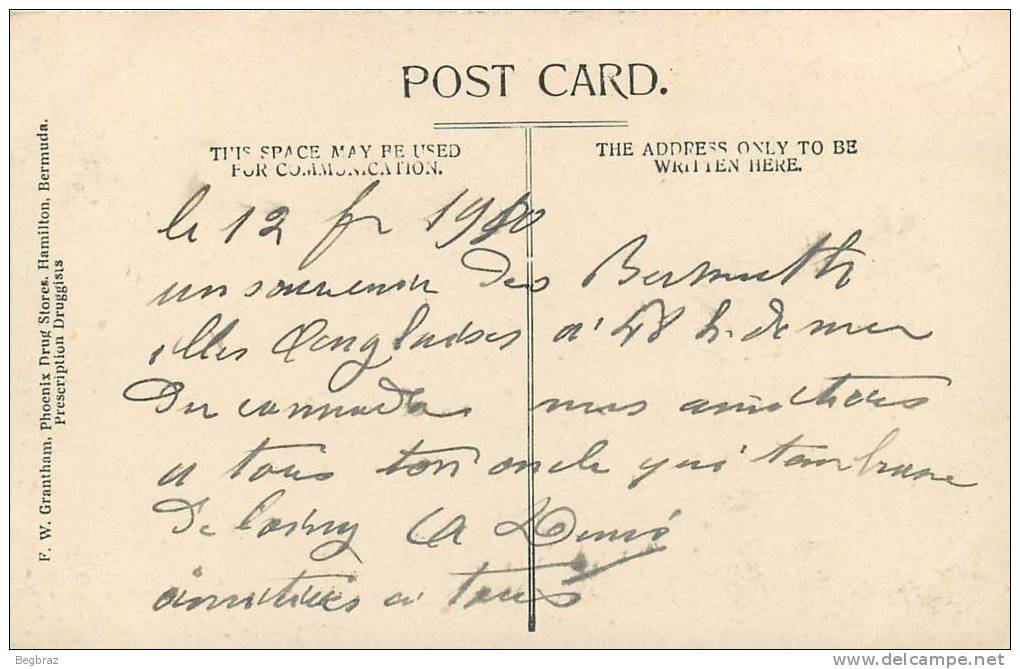 POST CARD.
THIS SPACE MAY BE USED
FOR COMMUNICATION.
THE ADDRESS ONLY TO BE
WRITTEN HERE.
F. W. Grantham, Phoenix Drug Stores, Hamilton, Bermuda.
Prescription Druggists
le 12 fr 1910
un souvenir des Bermuth
illes Anglaises a 48 h. de mer
Du cannada mes amitiers
a tous ton oncle qui t'embrasse
De loing A Denis
amitiers a tous
Begbraz
www.delcampe.net